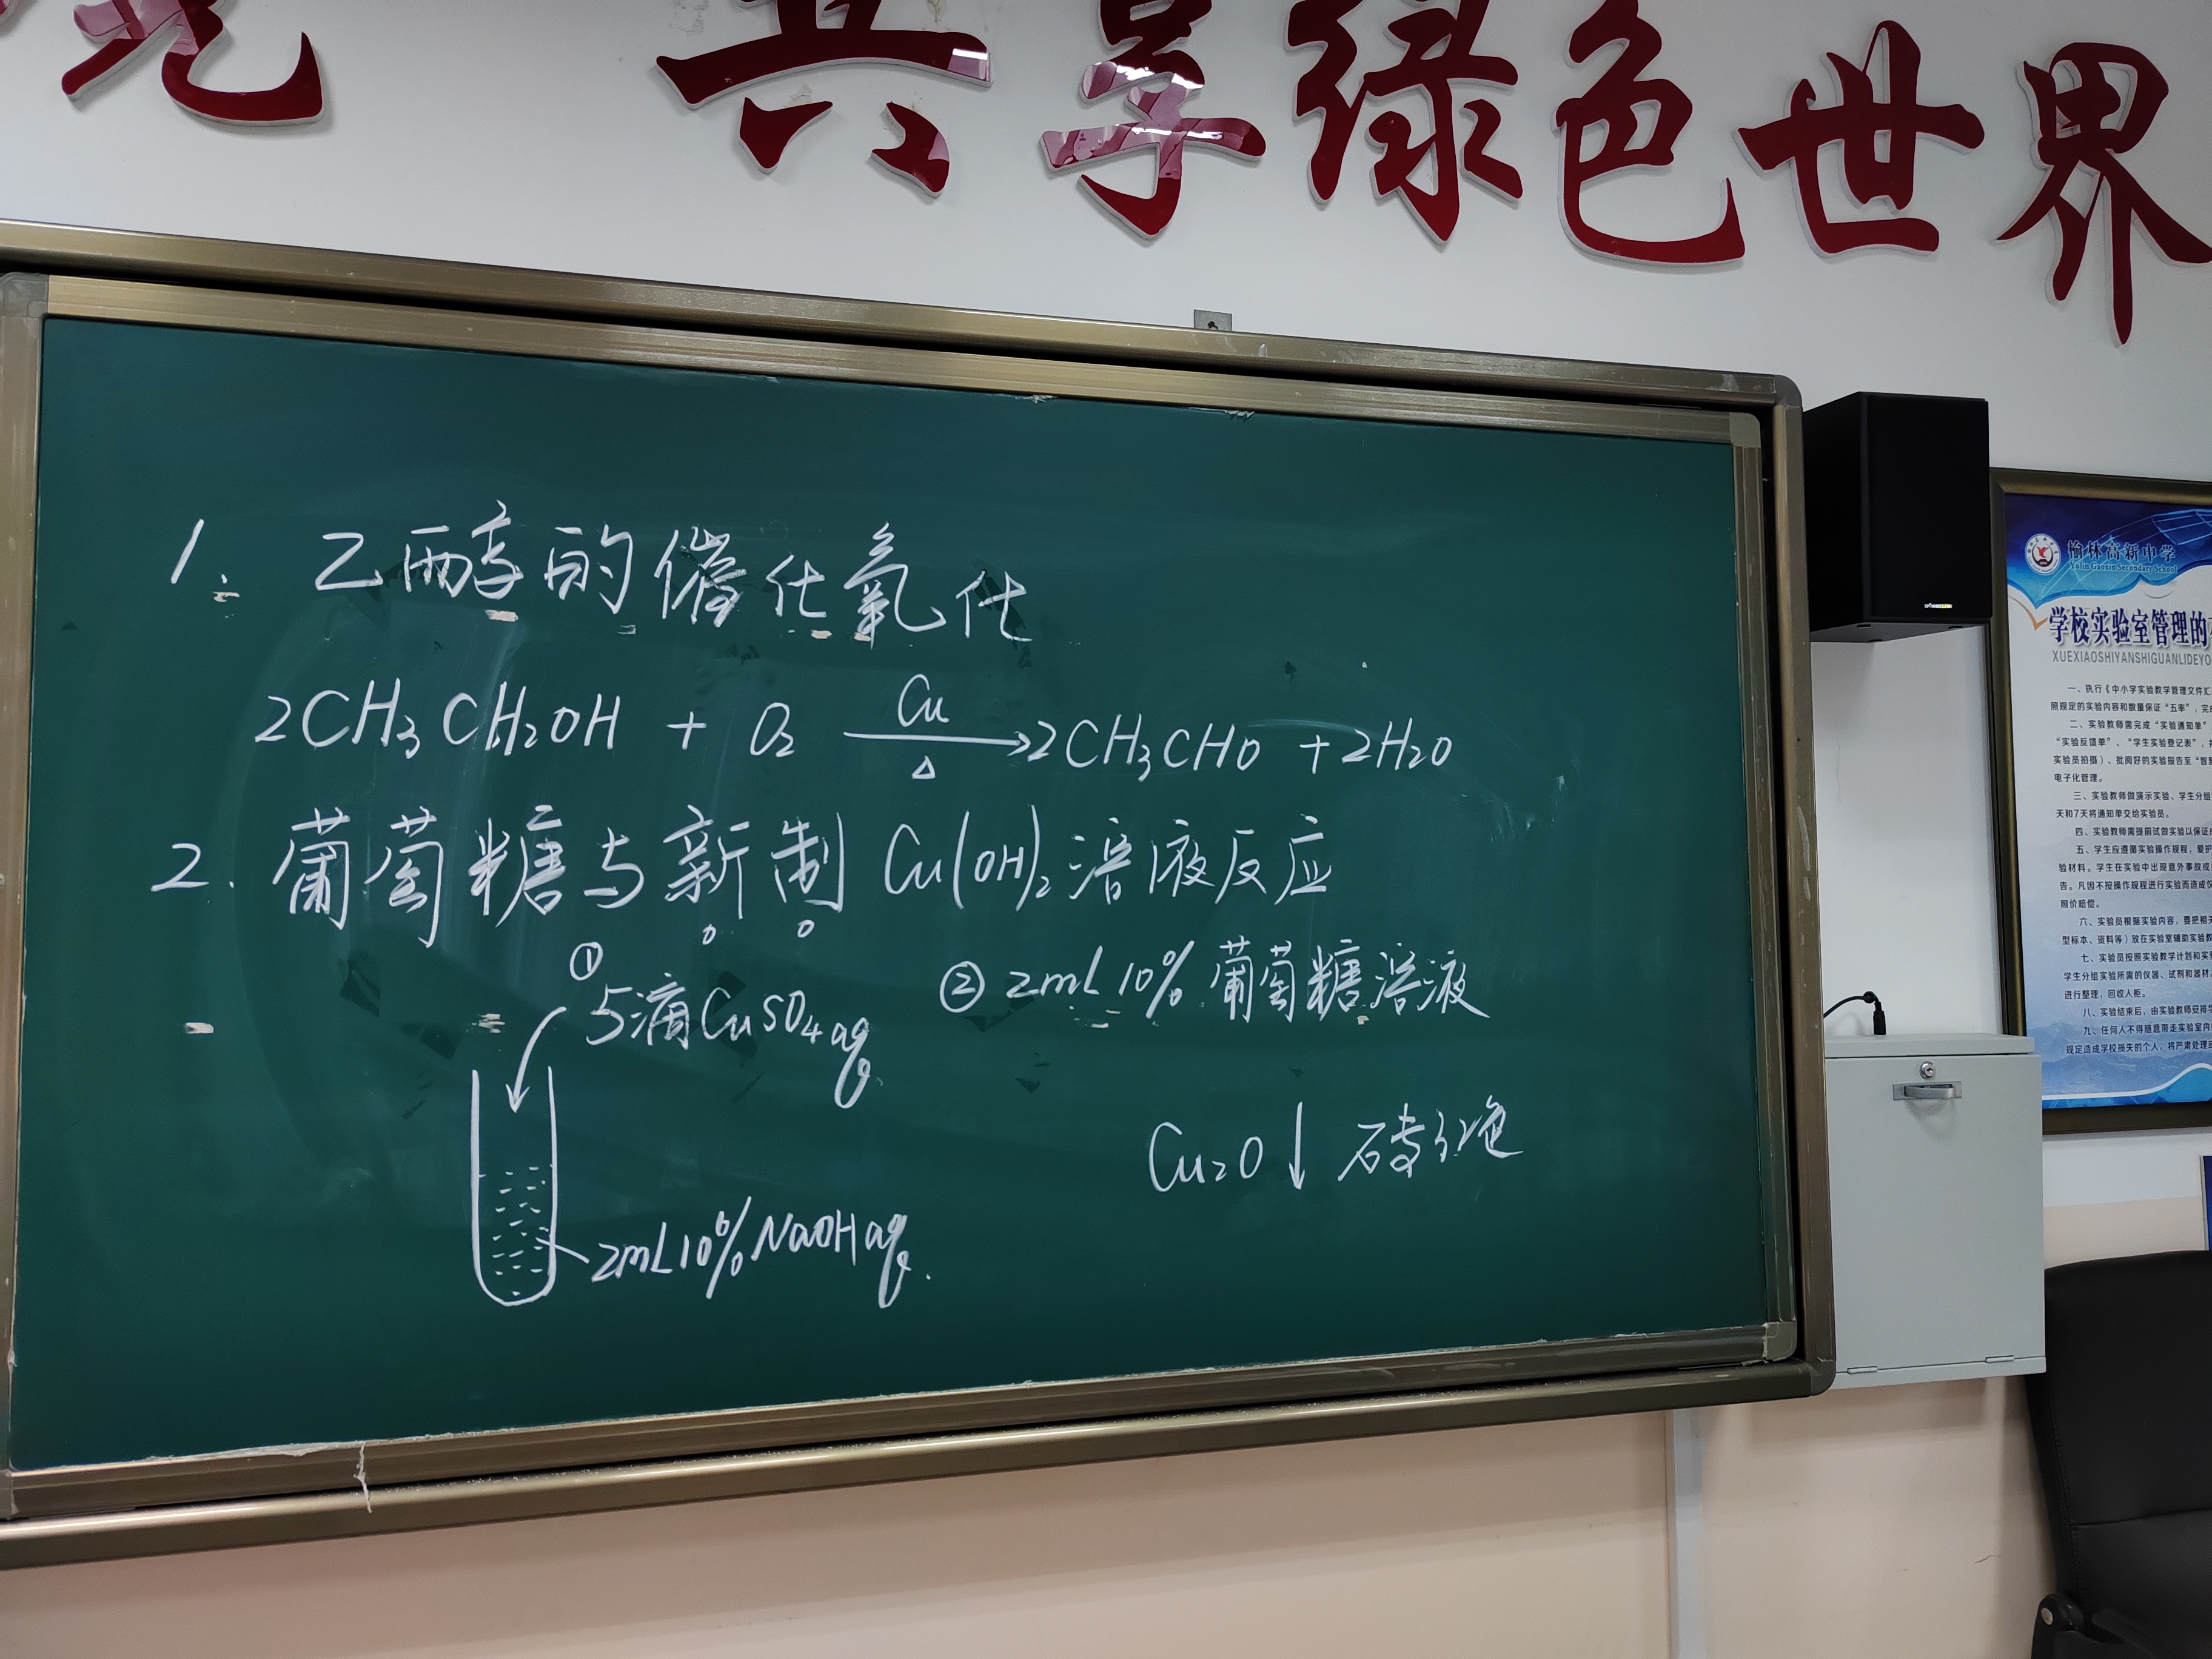 共享绿色世界
1. 乙醇的催化氧化
2CH₃CH₂OH + O₂ Cu △ → 2CH₃CHO + 2H₂O
2. 葡萄糖与新制Cu(OH)₂溶液反应
① 5滴CuSO₄aq
② 2mL 10% 葡萄糖溶液
Cu₂O↓ 砖红色
2mL10%NaOHaq.
榆林高新中学
Yulin Gaoxin Secondary School
学校实验室管理的
XUEXIAOSHIYANSHIGUANLIDEYO
一、执行《中小学实验教学管理文件汇
照规定的实验内容和数量保证“五率”，完
二、实验教师需完成“实验通知单”
“实验反馈单”、“学生实验登记表”，
实验员拍摄）、批阅好的实验报告至“智
电子化管理。
三、实验教师做演示实验、学生分组
天和7天将通知单交给实验员。
四、实验教师需提前试做实验以保证
五、学生应遵循实验操作规程，爱护
验材料。学生在实验中出现意外事故或
告。凡因不按操作规程进行实验而造成仪
照价赔偿。
六、实验员根据实验内容，要把相关
型标本、资料等）放在实验室辅助实验教
七、实验员按照实验教学计划和实验
学生分组实验所需的仪器、试剂和器材。
进行整理，回收入柜。
八、实验结束后，由实验教师安排学
九、任何人不得随意带走实验室内
规定造成学校损失的个人，将严肃处理